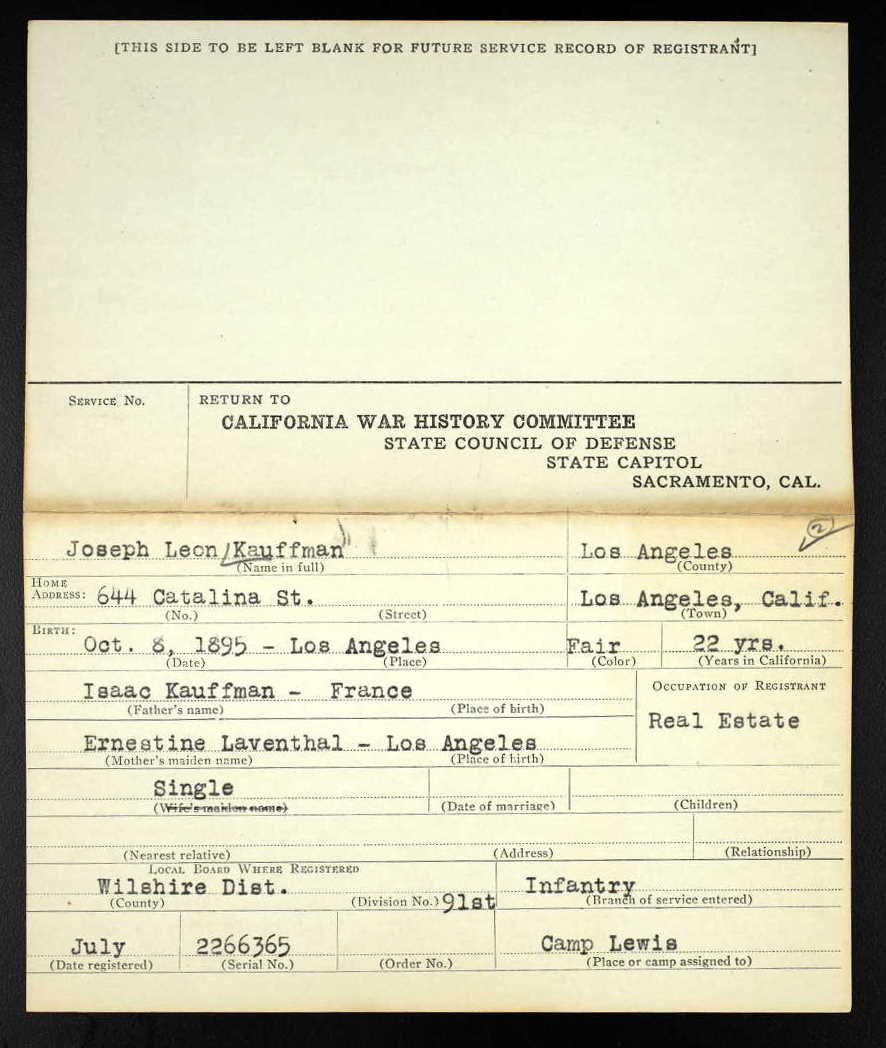 [THIS SIDE TO BE LEFT BLANK FOR FUTURE SERVICE RECORD OF REGISTRANT]
SERVICE NO.
RETURN TO
CALIFORNIA WAR HISTORY COMMITTEE
STATE COUNCIL OF DEFENSE
STATE CAPITOL
SACRAMENTO, CAL.
2
Joseph Leon/Kauffman Los Angeles
(Name in full) (County)
HOME ADDRESS: 644 Catalina St. Los Angeles, Calif.
(No.) (Street) (Town)
BIRTH:
Oct. 8, 1895 - Los Angeles Fair 22 yrs.
(Date) (Place) (Color) (Years in California)
Isaac Kauffman - France
(Father's name) (Place of birth)
OCCUPATION OF REGISTRANT
Real Estate
Ernestine Laventhal - Los Angeles
(Mother's maiden name) (Place of birth)
Single
(Wife's maiden name) (Date of marriage) (Children)
(Nearest relative) (Address) (Relationship)
LOCAL BOARD WHERE REGISTERED
Wilshire Dist. Infantry
(County) (Division No.) 91st (Branch of service entered)
July 2266365 Camp Lewis
(Date registered) (Serial No.) (Order No.) (Place or camp assigned to)